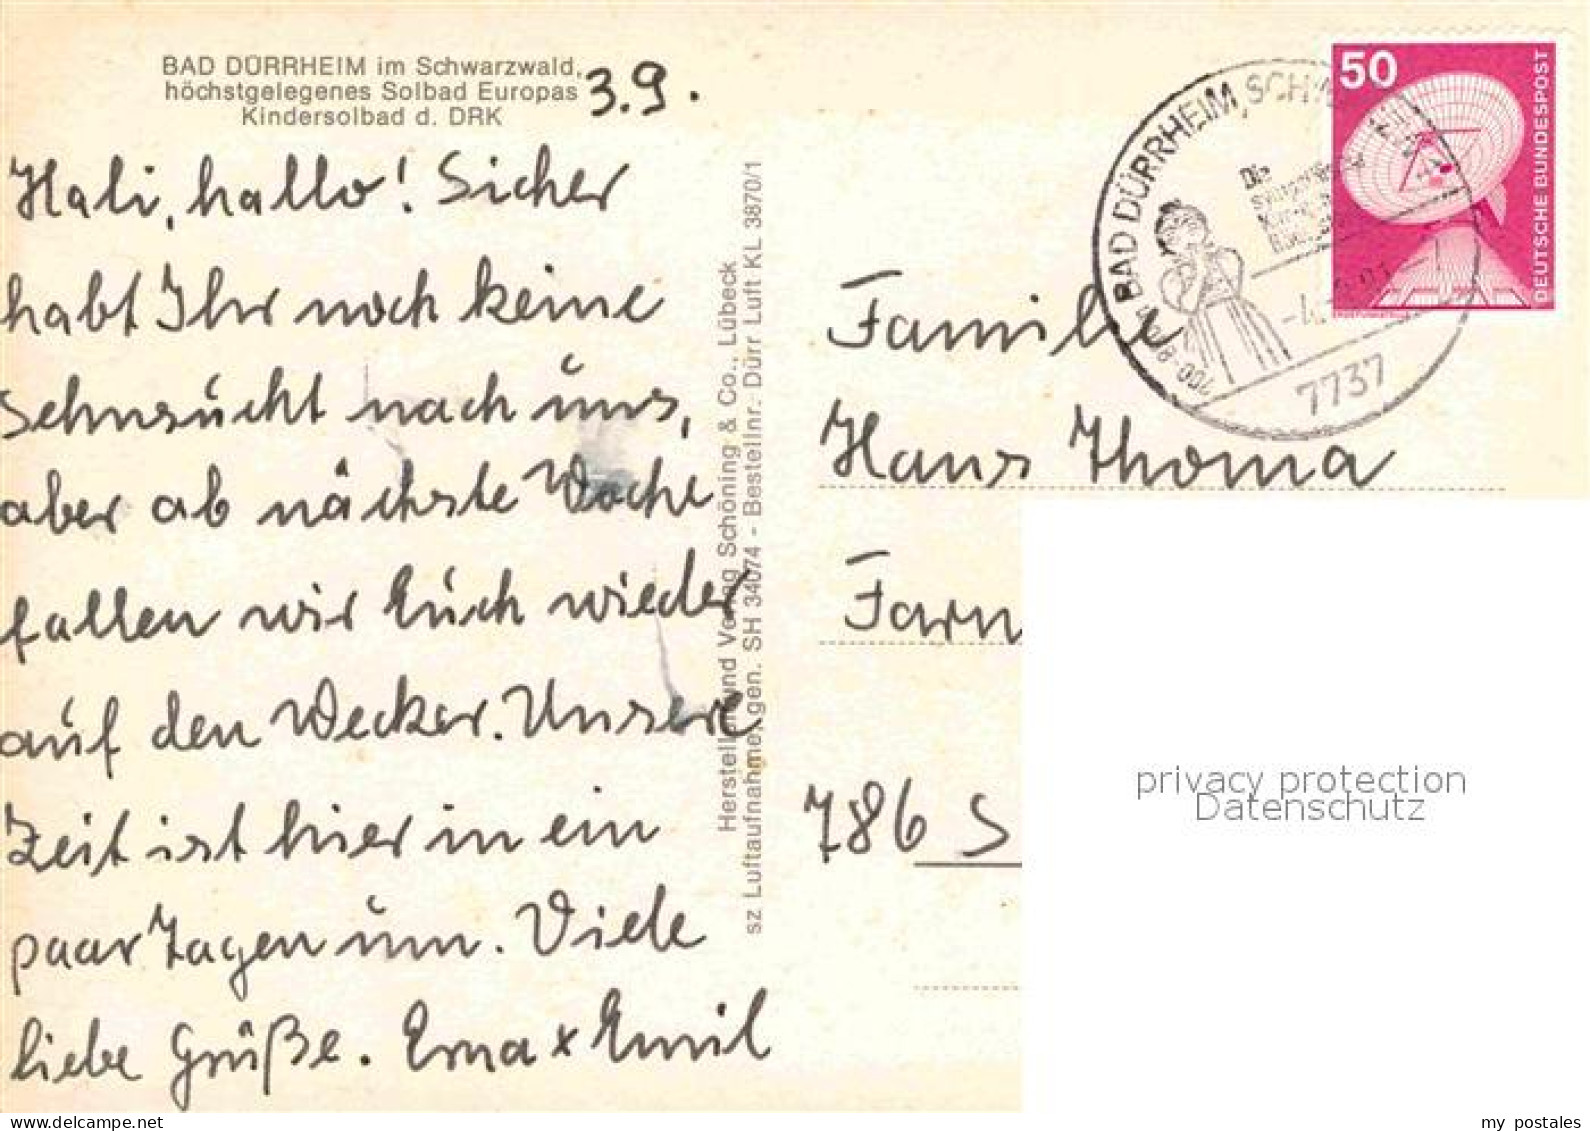 BAD DÜRRHEIM im Schwarzwald,
höchstgelegenes Solbad Europas
Kindersolbad d. DRK
3.9.
Hali, hallo! Sicher
habt Ihr noch keine
Sehnsucht nach uns,
aber ab nächste Woche
fallen wir Euch wieder
auf den Wecker. Unsere
Zeit ist hier in ein
paar Tagen um. Viele
liebe Grüße. Erna x Emil
Herstellung und Verlag Schöning & Co., Lübeck
sz Luftaufnahme, gen. SH 34074 - Bestellnr. Dürr Luft KL 3870/1
BAD DÜRRHEIM, SCHW
Die
7737
50
DEUTSCHE BUNDESPOST
Familie
Hans Thoma
Farn
786 S
privacy protection
Datenschutz
my postales